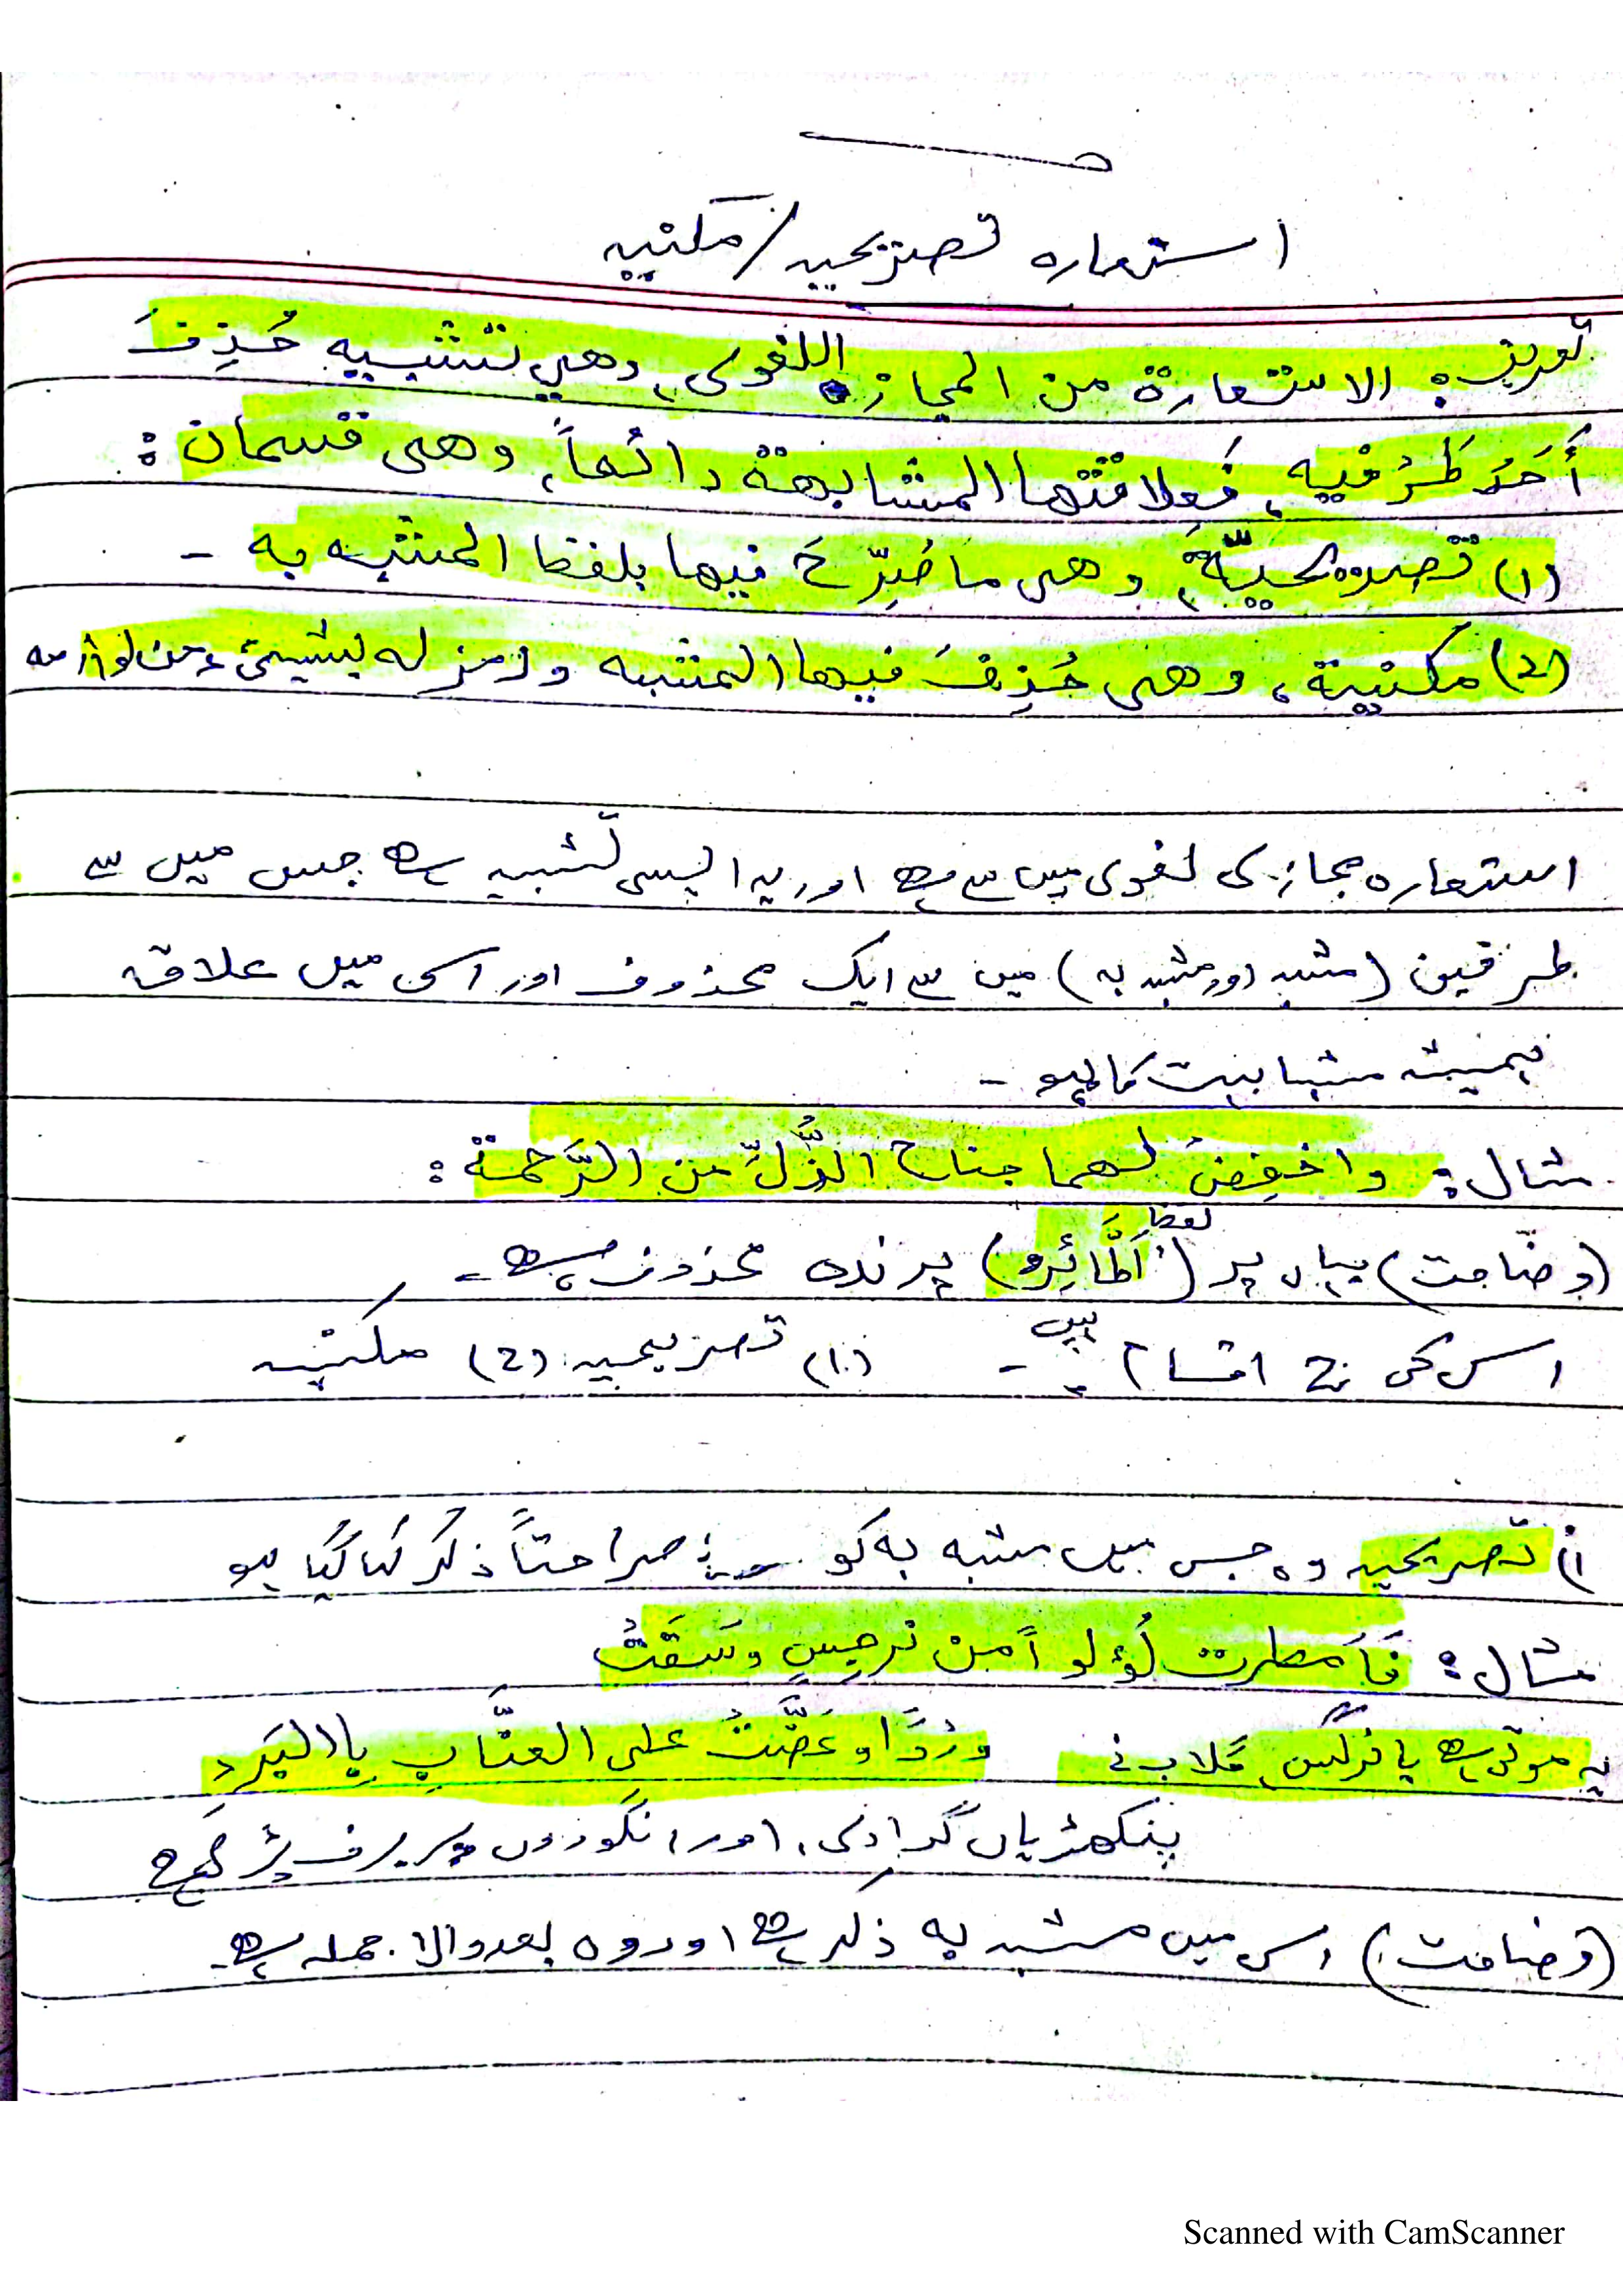 استعاره تصریحیہ/مکنیہ
تعریف: الاستعارة من المجاز اللغوی، وهي تشبيه حُذِفَ
أَحَدُ طَرُفیه، فَعِلاقتها المشابهة دائماً، وهی قسمان:
(۱) تصریحیّةَ، وهی ما صُرِّحَ فیها بلفظ المشبه به -
(2) مكنیة، وهی حُذِفَ فیها المشبه ورمز له بشیئ من لوازمه
استعاره مجازی لغوی میں سے ہے اور یہ ایسی تشبیہ ہے جس میں سے
طرفین (مشبہ اور مشبہ بہ) میں سے ایک محذوف اور اسکی میں علاقہ
ہمیشہ مشابہت کا ہو -
مثال: واخفِضْ لهما جناح الذُّلِّ من الرَّحمة:
(وضاحت) یہاں پر لفظ (اَلطَّائِرُ) پرندہ محذوف ہے -
اس کی 2 اقسام ہیں - (۱) تصریحیہ (2) مکنیہ
۱) تصریحیہ وہ جس میں مشبہ بہ کو صراحتاً ذکر کیا گیا ہو
مثال: فَأَمطرت لُؤلواً من نرجِسٍ وسَقَتْ
یہ موتی ہے یا نرگس گلاب نے وَرْدًا وعَضَّتْ علی العنَّابِ بِالبَرَدِ
پنکھڑیاں گرادی، اور انگوروں پر برف پڑ گئی ہے
(وضاحت) اس میں مشبہ بہ ذکر ہے اور وہ بعد والا جملہ ہے۔
Scanned with CamScanner